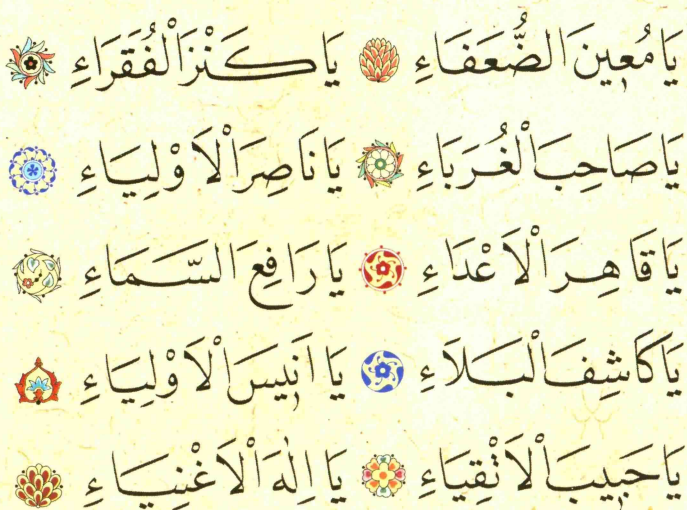 يَا مُعِينَ الضُّعَفَاءِ يَا كَنْزَ الْفُقَرَاءِ
يَا صَاحِبَ الْغُرَبَاءِ يَا نَاصِرَ الْاَوْلِيَاءِ
يَا قَاهِرَ الْاَعْدَاءِ يَا رَافِعَ السَّمَاءِ
يَا كَاشِفَ الْبَلَاءِ يَا اَنِيسَ الْاَوْلِيَاءِ
يَا حَبِيبَ الْاَتْقِيَاءِ يَا اِلٰهَ الْاَغْنِيَاءِ